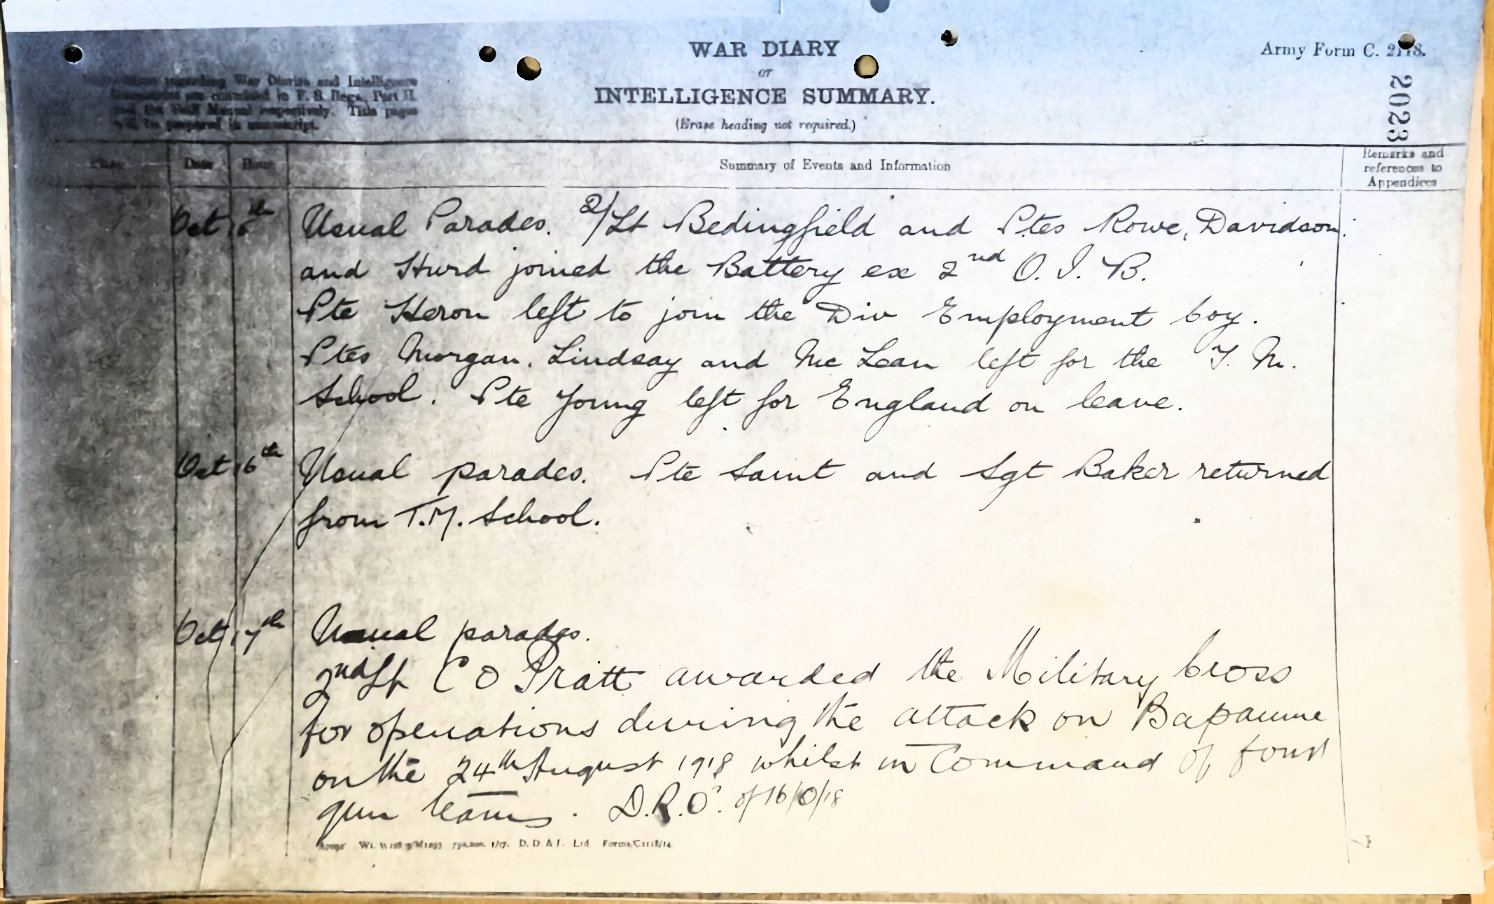 WAR DIARY
or
INTELLIGENCE SUMMARY.
(Erase heading not required.)
Army Form C. 2118.
2023
Instructions regarding War Diaries and Intelligence
Summaries are contained in F. S. Regs., Part II.
and the Staff Manual respectively. Title pages
will be prepared in manuscript.
Place Date Hour Summary of Events and Information Remarks and references to Appendices
Oct Usual Parades. 2/Lt Bedingfield and Ptes Rowe, Davidson
and Hurd joined the Battery ex 2nd O. I. B.
Pte Heron left to join the Div Employment Coy.
Ptes Morgan, Lindsay and McLean left for the T. M.
School. Pte Young left for England on leave.
Oct 16th Usual parades. Pte Saint and Sgt Baker returned
from T.M. School.
Oct 17th Usual parades.
2nd Lt C O Pratt awarded the Military Cross
for operations during the attack on Bapaume
on the 24th August 1918 whilst in Command of four
gun teams. D.R.O. of 16/10/18
D. D. & L. Ltd. Forms/C2118/14